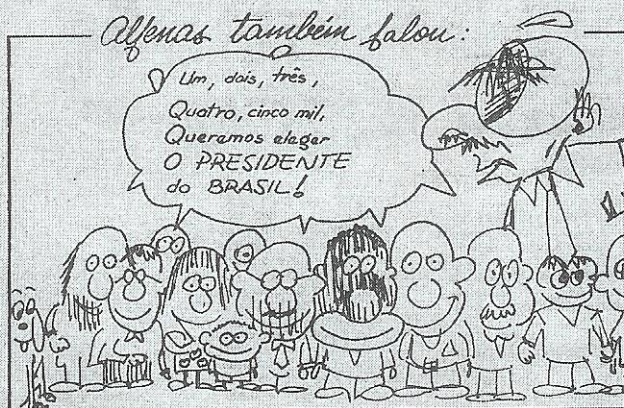 Alfenas também falou:
Um, dois, três,
Quatro, cinco mil,
Queremos eleger
O PRESIDENTE
do BRASIL!